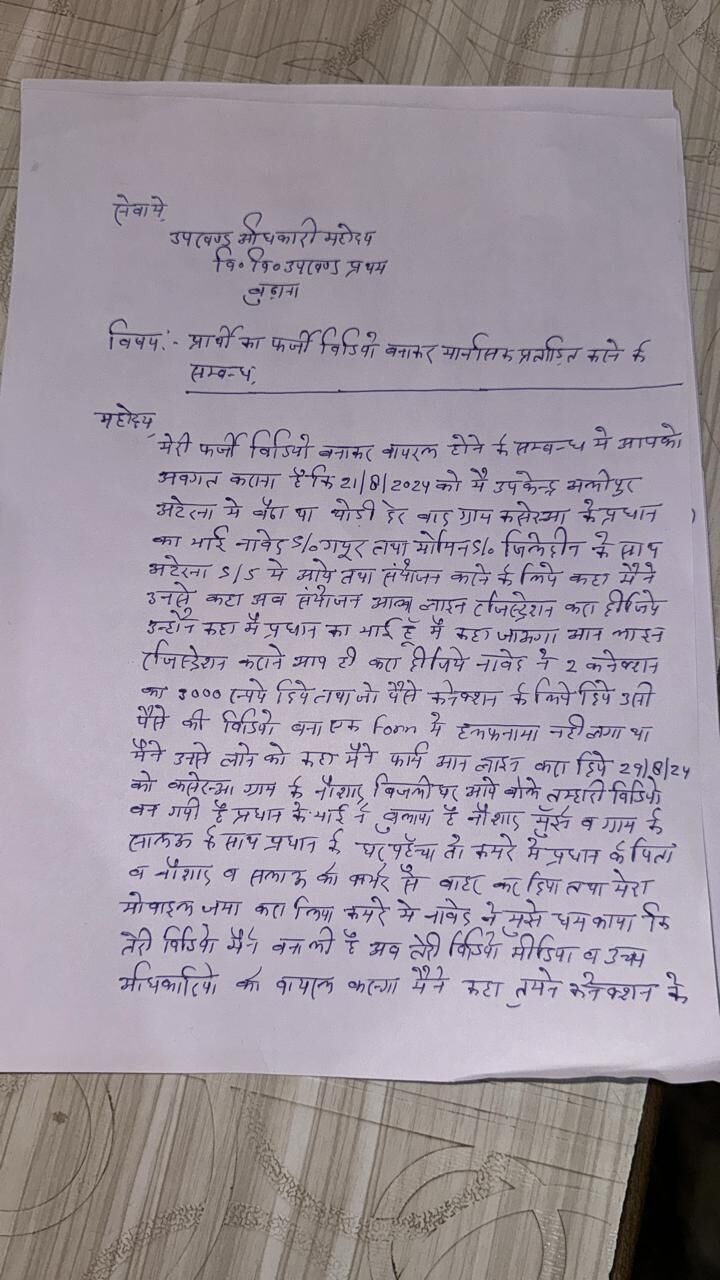 सेवामे,
उपखण्ड अधिकारी महोदय
वि॰ वि॰ उपखण्ड प्रथम
बुढाना
विषय:- प्रार्थी का फर्जी विडियो बनाकर मानसिक प्रताड़ित करने के
सम्बन्ध,
महोदय,
मेरी फर्जी विडियो बनाकर वायरल होने के सम्बन्ध मे आपको
अवगत कराना है कि 21/8/2024 को मै उपकेन्द्र अलीपुर
अटेरना मे बैठा था थोडी देर बाद ग्राम कसेरवा के प्रधान
का भाई नावेद S/o गफूर तथा मोमिन S/o के साथ
अटेरना S/S मे आये तथा संयोजन करने के लिये कहा मैने
उनसे कहा अब संयोजन आन लाइन रजिस्ट्रेशन करा दीजिये
उन्होने कहा मै प्रधान का भाई हूँ मै कहा जाऊगा आन लाइन
रजिस्ट्रेशन कराने आप ही करा दीजिये नावेद ने 2 कनेक्शन
का 3000 रूपये दिये तथा जो पैसे कनेक्शन के लिये दिये उसी
पैसे की विडियो बना एक Form मे हलफनामा नही लगा था
मैने उनसे लाने को कहा मैने फार्म आन लाइन करा दिये 29/8/24
को कसेरवा ग्राम के नौशाद बिजलीघर आये बोले तुम्हारी विडियो
बन गयी है प्रधान के भाई ने बुलाया है नौशाद मुझे व ग्राम के
के साथ प्रधान के घर पहुँचा तो कमरे मे प्रधान के पिता
व नौशाद व को कमरे से बाहर कर दिया तथा मेरा
मोबाइल जमा करा लिया कमरे मे नावेद ने मुझे धमकाया कि
तेरी विडियो मैने बना ली है अब तेरी विडियो मीडिया व उच्च
अधिकारियो को वायरल करूगा मैने कहा तुमने कनेक्शन के